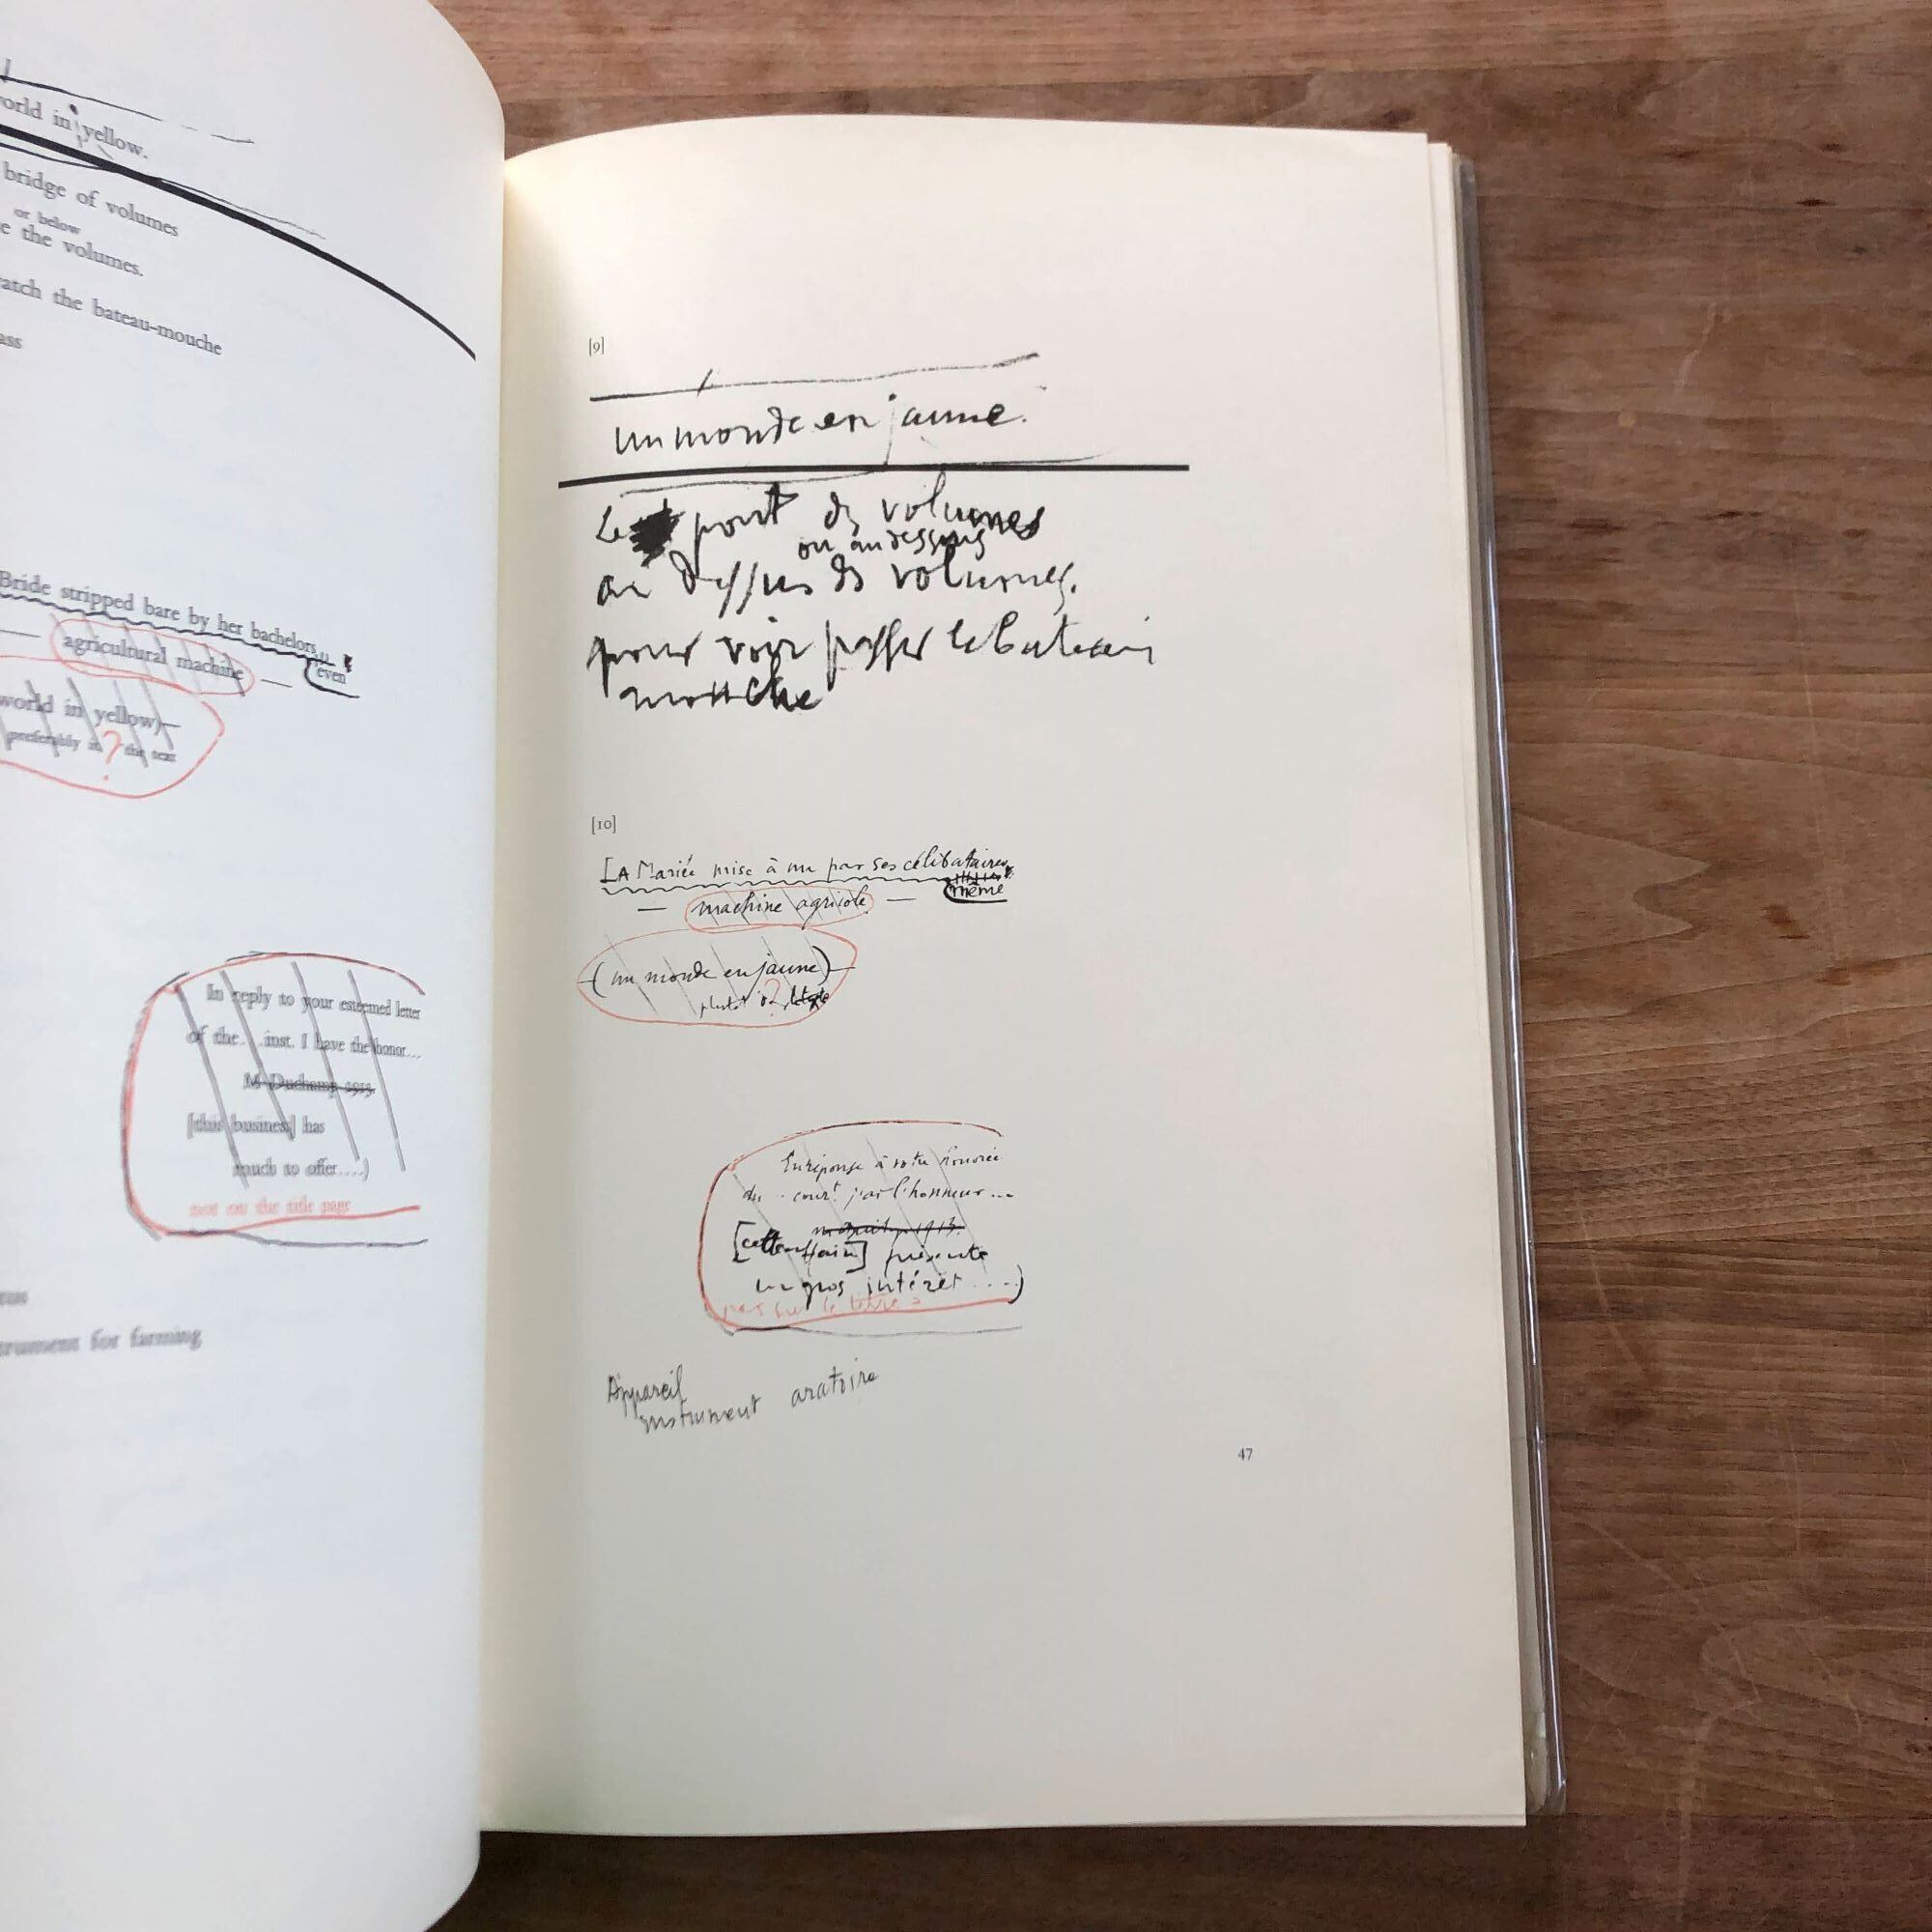 world in yellow.
bridge of volumes
or below
the volumes.
the bateau-mouche
Bride stripped bare by her bachelors
even
agricultural machine
world in yellow)
preferably in ? the text
In reply to your esteemed letter
of the. . .inst. I have the honor...
M Duchamp 1913.
[this business] has
much to offer....)
not on the title page
instrument for farming
[9]
un monde en jaune.
Le pont des volumes
ou au dessous
au dessus des volumes.
pour voir passer le bateau
mouche
[10]
LA Mariée mise à nu par ses célibataires
même
— machine agricole —
(un monde en jaune)
plutôt ? le texte
En réponse à votre honorée
du . . court j'ai l'honneur...
1913.
[cette affaire] présente
un gros intérêt ....)
pas sur le titre
Appareil
instrument aratoire
47